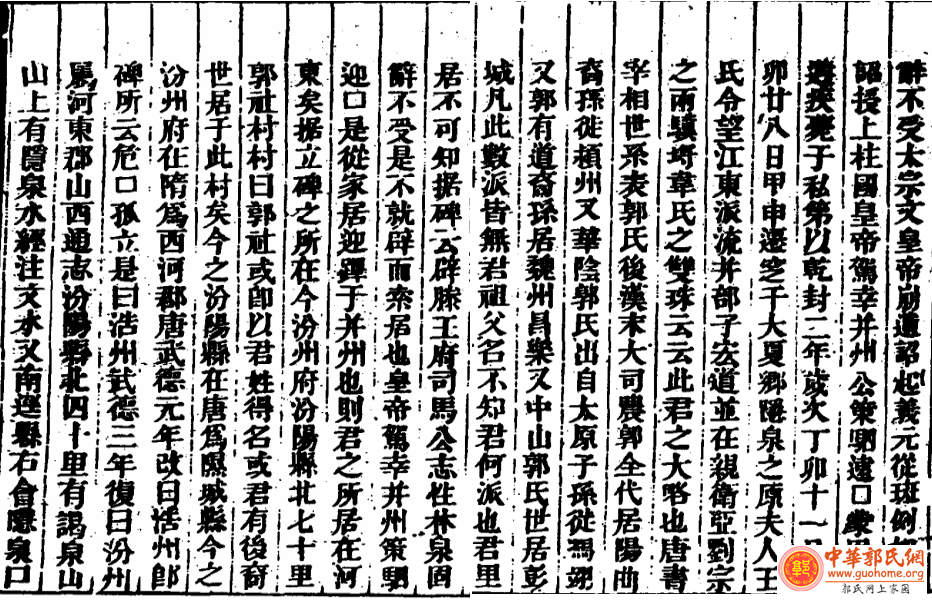 辭不受太宗文皇帝崩遺詔起義元從班例
詔授上柱國皇帝駕幸并州公策駟遠口
遘疾薨于私第以乾封二年歲次丁卯十一
卯廿八日甲申遷窆于大夏鄉隱泉之原夫人王
氏令望江東派流并部子宏道並在親衛亞到宗
之兩驥埒韋氏之雙珠云云此君之大略也唐書
宰相世系表郭氏後漢末大司農郭全代居陽曲
裔孫徙潁州又華陰郭氏出自太原子孫徙馮翊
又郭有道裔孫居魏州昌樂又中山郭氏世居彭
城凡此數派皆無君祖父名不知君何派也君里
居不可知据碑云辟滕王府司馬公志性林泉固
辭不受是不就辟而索居也皇帝駕幸并州策駟
迎口是從家居迎蹕于并州也則君之所居在河
東矣据立碑之所在今汾州府汾陽縣北七十里
郭社村村曰郭社或卽以君姓得名或君有後裔
世居于此村矣今之汾陽縣在唐爲隰城縣今之
汾州府在隋爲西河郡唐武德元年改曰浩州卽
碑所云危口孤立是曰浩州武德三年復曰汾州
屬河東郡山西通志汾陽縣北四十里有謁泉山
山上有隱泉水經注文水又南逕縣右會隱泉口
中華郭氏網
www.guohome.org
郭氏网上家园